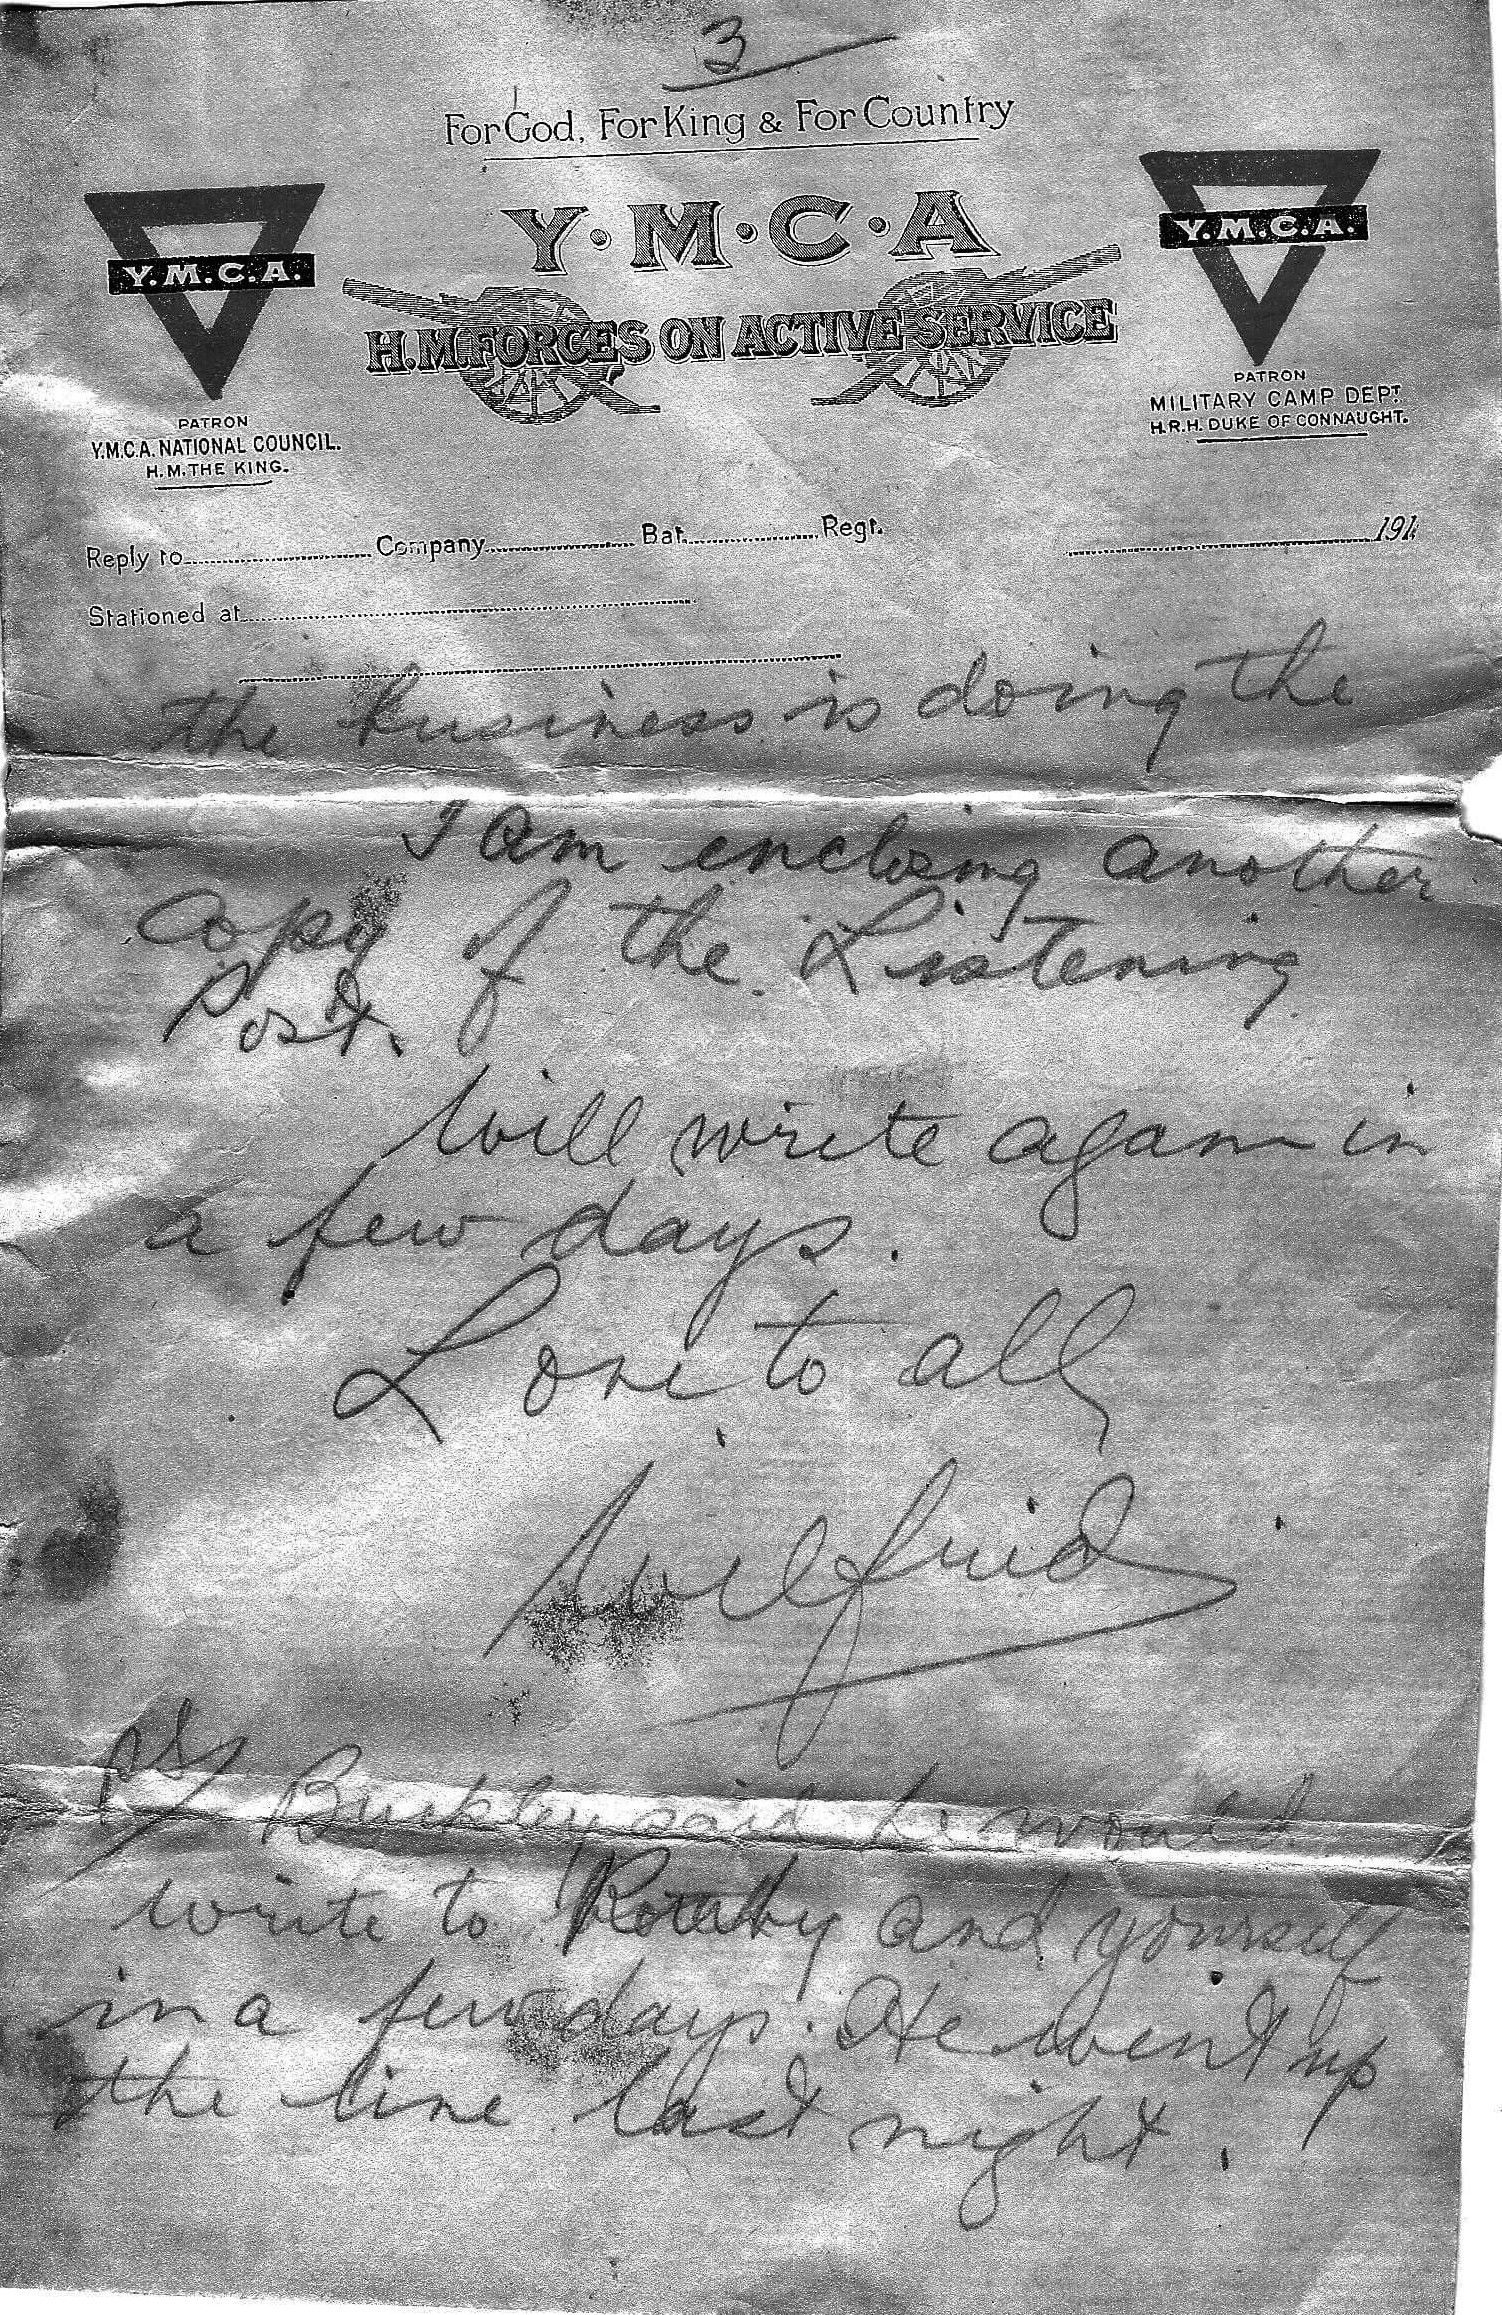 3
For God, For King & For Country
Y·M·C·A
Y.M.C.A.
Y.M.C.A.
H.M. FORCES ON ACTIVE SERVICE
PATRON
Y.M.C.A. NATIONAL COUNCIL.
H.M. THE KING.
PATRON
MILITARY CAMP DEPT.
H.R.H. DUKE OF CONNAUGHT.
Reply to Company Bat. Regt. 191
Stationed at
the business is doing the
I am enclosing another
copy of the Listening
Post.
Will write again in
a few days.
Love to all
Wilfrid
PS/ said he would
write to and yourself
in a few days. He went up
the line last night.